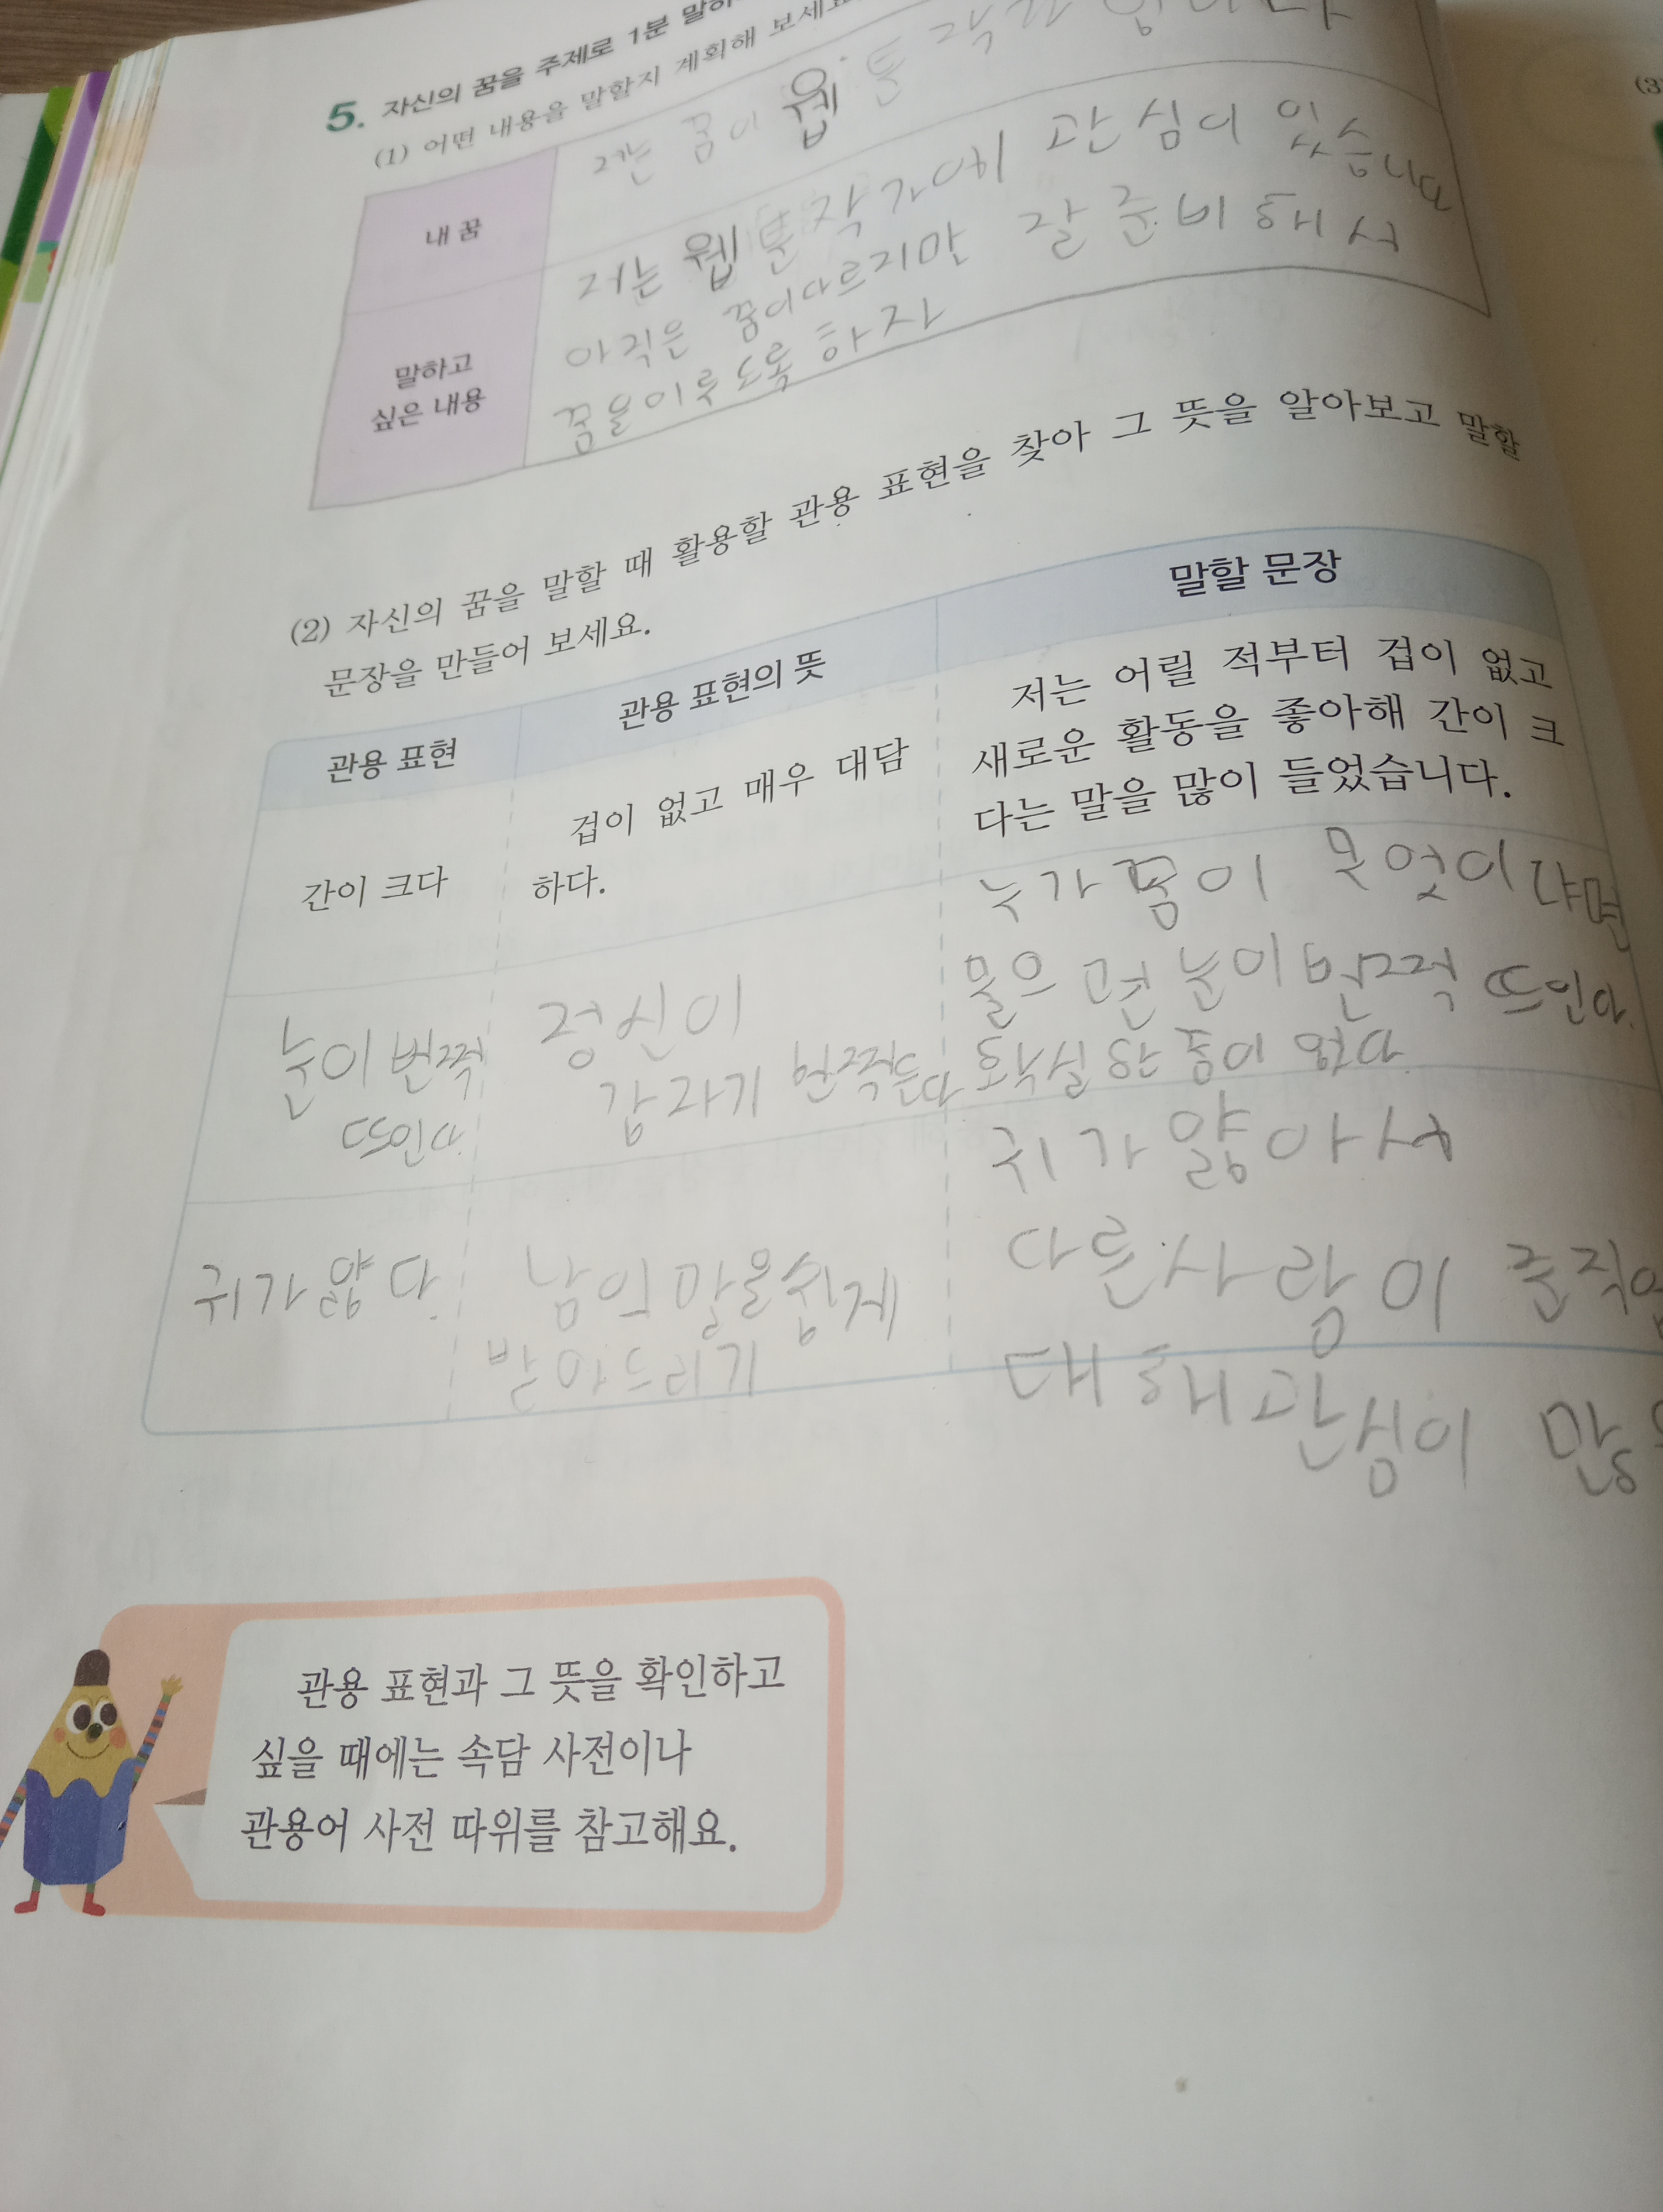 5. 자신의 꿈을 주제로 1분 말하
(1) 어떤 내용을 말할지 계획해 보세요
내 꿈
저는 꿈이 웹툰 작가 입니다
말하고
싶은 내용
저는 웹툰작가에 관심이 있습니다
아직은 꿈이다르지만 잘 준비해서
꿈을이루도록 하자
(2) 자신의 꿈을 말할 때 활용할 관용 표현을 찾아 그 뜻을 알아보고 말할
문장을 만들어 보세요.
관용 표현
관용 표현의 뜻
말할 문장
간이 크다
겁이 없고 매우 대담
하다.
저는 어릴 적부터 겁이 없고
새로운 활동을 좋아해 간이 크
다는 말을 많이 들었습니다.
눈이 번쩍
뜨인다.
정신이
갑자기 번쩍든다
누가 꿈이 무엇이냐면
물으면 전 눈이 번쩍 뜨인다.
확실한 꿈이 없다.
귀가 얇다.
남의 말을쉽게
받아드리기
귀가 얇아서
다른사람이
대해관심이
관용 표현과 그 뜻을 확인하고
싶을 때에는 속담 사전이나
관용어 사전 따위를 참고해요.